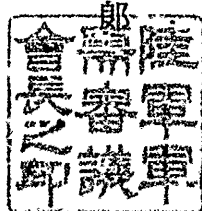 郎
陸軍軍
需審議
會長之印